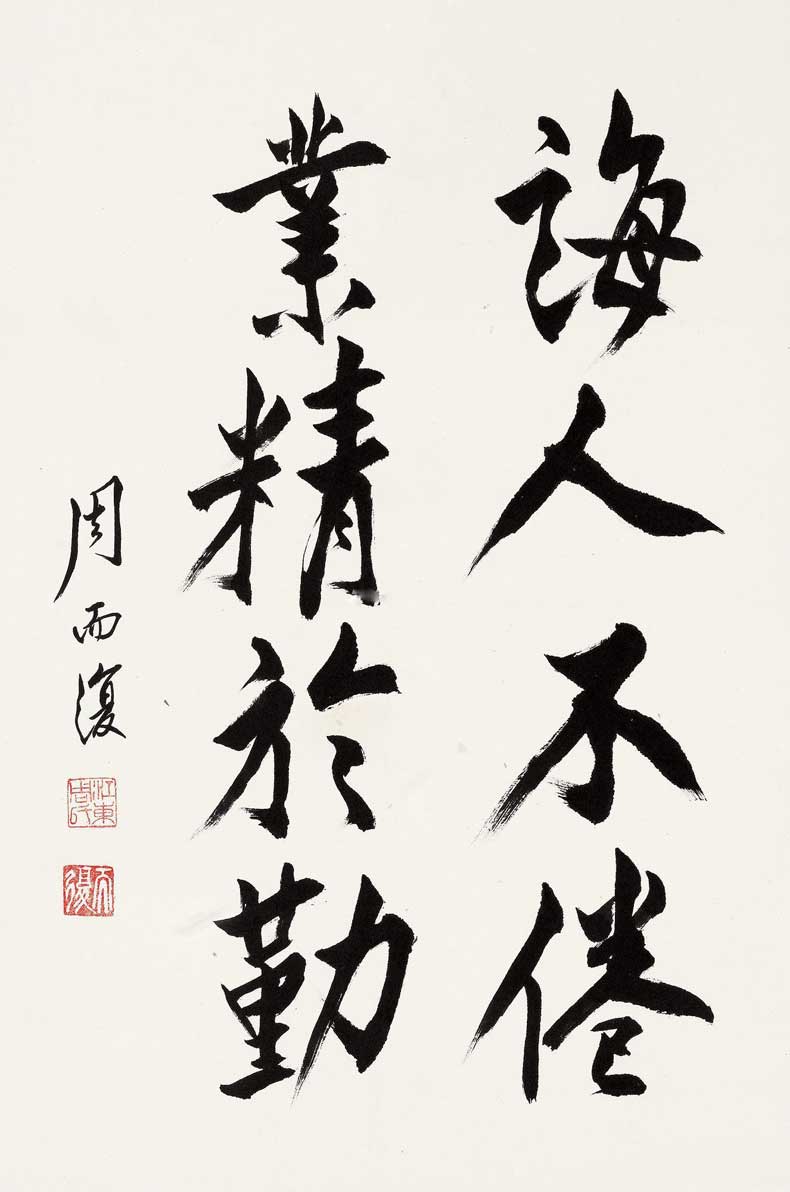 誨人不倦
業精於勤
周而復
江東周氏
而復